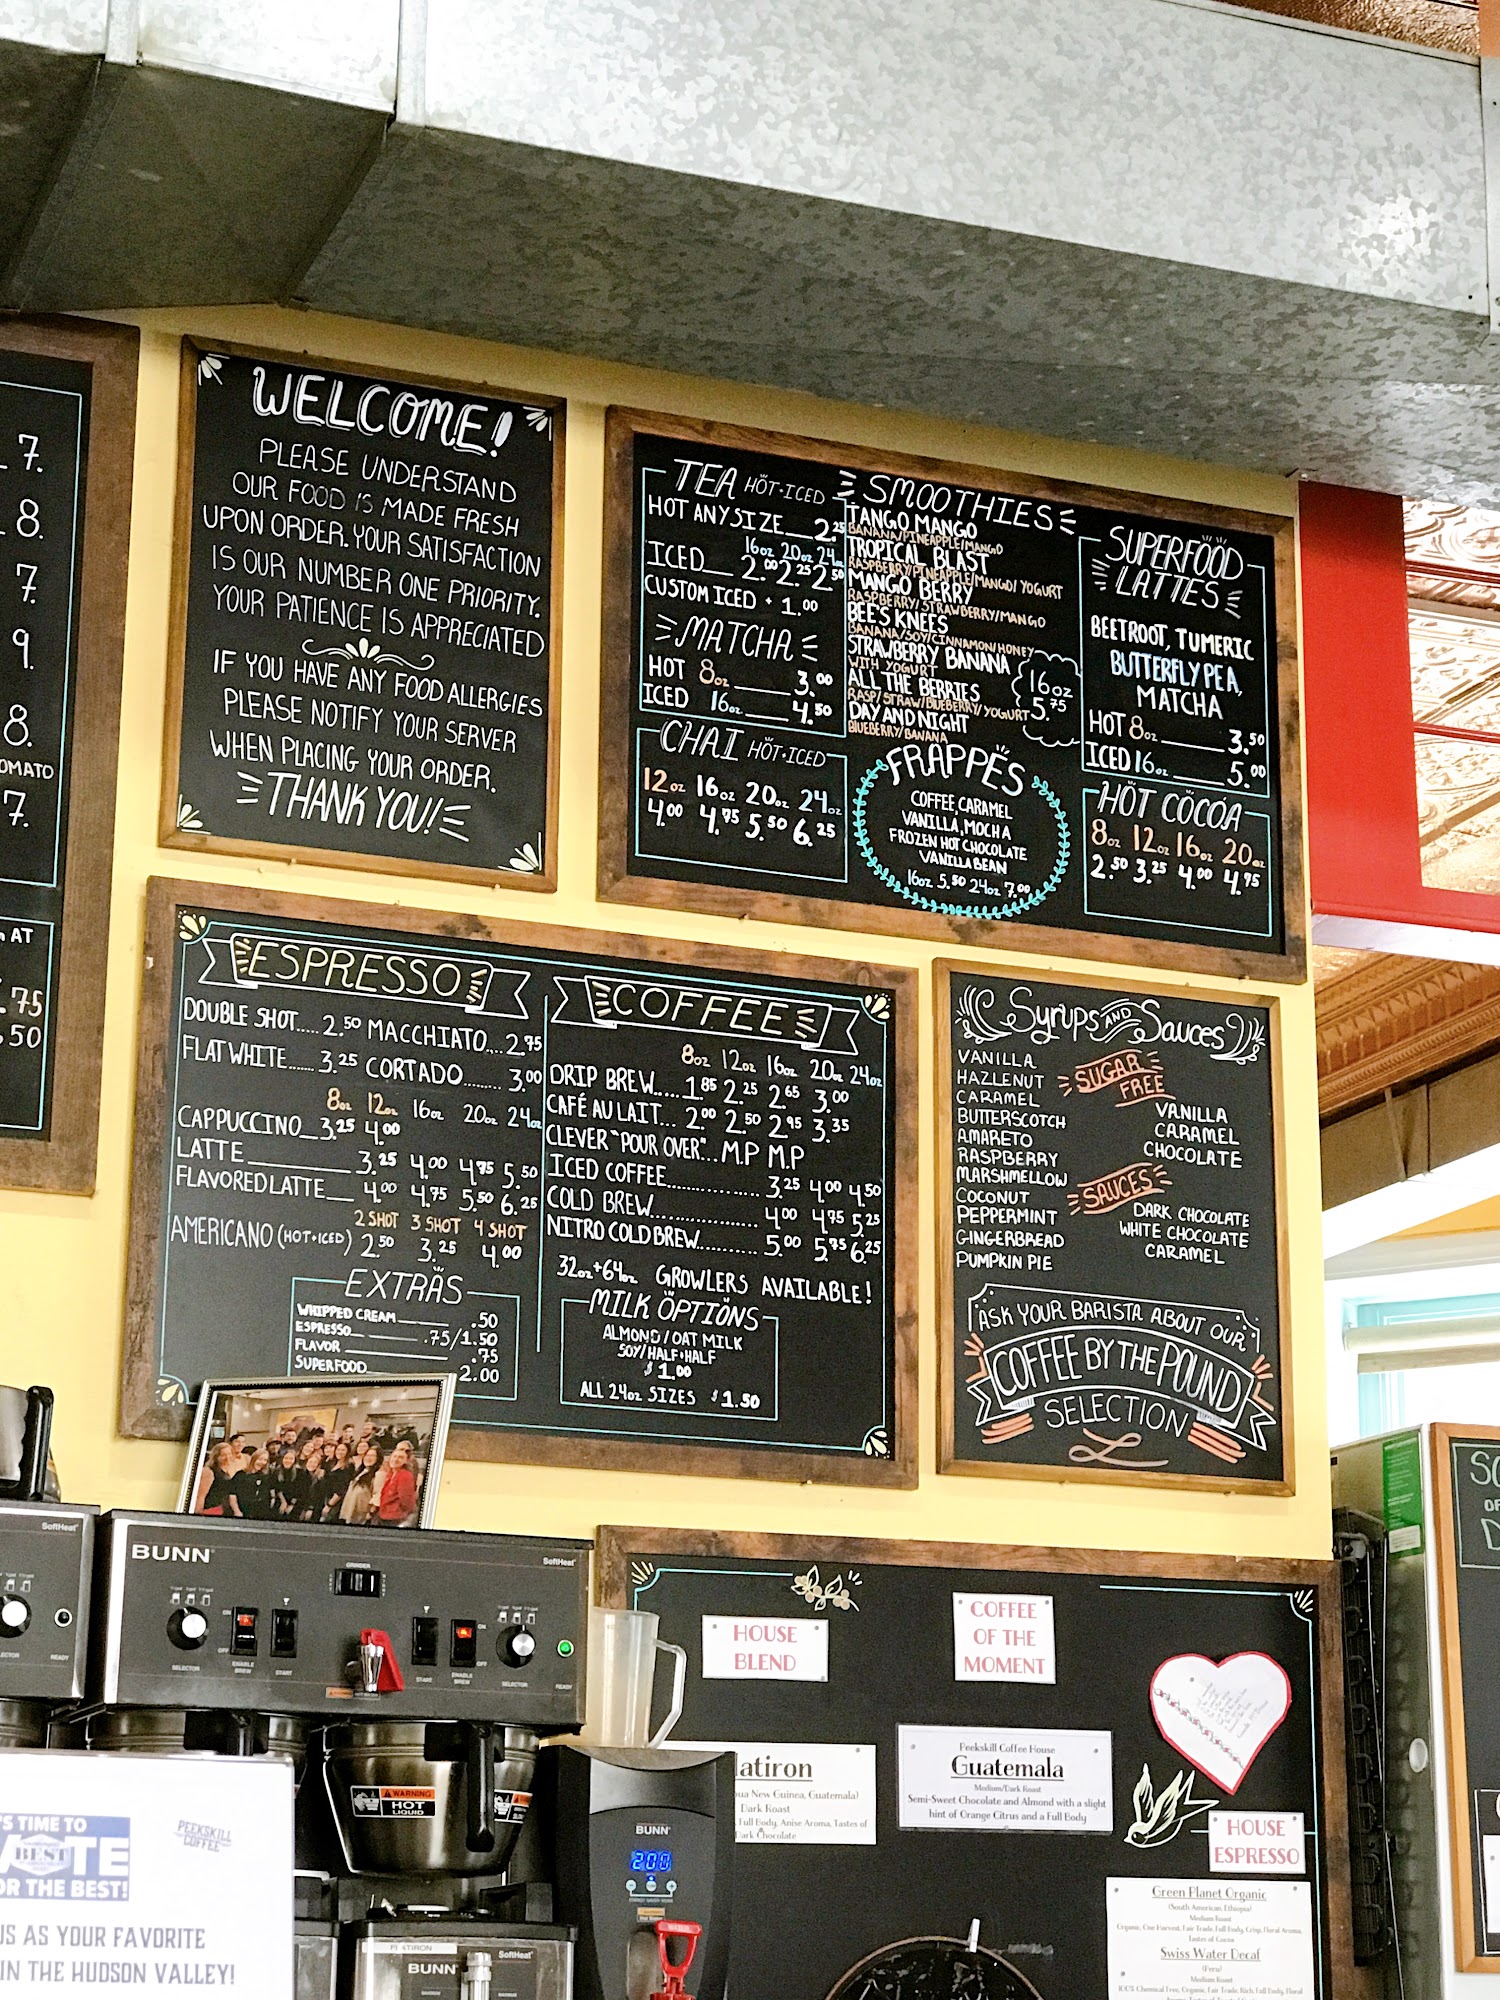 7.
8.
7.
9.
8.
OMATO
7.
AT
.75
.50
WELCOME!
PLEASE UNDERSTAND
OUR FOOD IS MADE FRESH
UPON ORDER. YOUR SATISFACTION
IS OUR NUMBER ONE PRIORITY.
YOUR PATIENCE IS APPRECIATED
IF YOU HAVE ANY FOOD ALLERGIES
PLEASE NOTIFY YOUR SERVER
WHEN PLACING YOUR ORDER.
THANK YOU!
TEA HOT·ICED
HOT ANY SIZE__2.25
16oz 20oz 24oz
ICED__2.00 2.25 2.50
CUSTOM ICED + 1.00
MATCHA
HOT 8oz____3.00
ICED 16oz.____4.50
CHAI HOT·ICED
12oz 16oz 20oz 24oz
4.00 4.75 5.50 6.25
SMOOTHIES
TANGO MANGO
BANANA/PINEAPPLE/MANGO
TROPICAL BLAST
RASPBERRY/PINEAPPLE/MANGO/YOGURT
MANGO BERRY
RASPBERRY/STRAWBERRY/MANGO
BEE'S KNEES
BANANA/SOY/CINNAMON/HONEY
STRAWBERRY BANANA
WITH YOGURT
ALL THE BERRIES
RASP/STRAW/BLUEBERRY/YOGURT
DAY AND NIGHT
BLUEBERRY/BANANA
16oz
5.75
FRAPPÉS
COFFEE, CARAMEL
VANILLA, MOCHA
FROZEN HOT CHOCOLATE
VANILLA BEAN
16oz 5.50 24oz 7.00
SUPERFOOD
LATTES
BEETROOT, TUMERIC
BUTTERFLY PEA,
MATCHA
HOT 8oz____3.50
ICED 16oz____5.00
HOT COCOA
8oz 12oz 16oz 20oz
2.50 3.25 4.00 4.75
ESPRESSO
DOUBLE SHOT.....2.50 MACCHIATO....2.75
FLAT WHITE......3.25 CORTADO........3.00
8oz 12oz 16oz 20oz 24oz
CAPPUCCINO__3.25 4.00
LATTE________3.25 4.00 4.75 5.50
FLAVORED LATTE__4.00 4.75 5.50 6.25
2 SHOT 3 SHOT 4 SHOT
AMERICANO (HOT+ICED) 2.50 3.25 4.00
EXTRAS
WHIPPED CREAM____.50
ESPRESSO____.75/1.50
FLAVOR____.75
SUPERFOOD____2.00
COFFEE
8oz 12oz 16oz 20oz 24oz
DRIP BREW.....1.85 2.25 2.65 3.00
CAFÉ AU LAIT... 2.00 2.50 2.95 3.35
CLEVER "POUR OVER"...M.P M.P
ICED COFFEE..............3.25 4.00 4.50
COLD BREW...............4.00 4.75 5.25
NITRO COLD BREW..........5.00 5.75 6.25
32oz+64oz GROWLERS AVAILABLE!
MILK OPTIONS
ALMOND/OAT MILK
SOY/HALF+HALF
$1.00
ALL 24oz SIZES $1.50
Syrups AND Sauces
VANILLA
HAZLENUT
CARAMEL
BUTTERSCOTCH
AMARETO
RASPBERRY
MARSHMELLOW
COCONUT
PEPPERMINT
GINGERBREAD
PUMPKIN PIE
SUGAR
FREE
VANILLA
CARAMEL
CHOCOLATE
SAUCES
DARK CHOCOLATE
WHITE CHOCOLATE
CARAMEL
ASK YOUR BARISTA ABOUT OUR
COFFEE BY THE POUND
SELECTION
SoftHeat
READY
BUNN
GRINDER
SoftHeat
ON
OFF
SELECTOR
ENABLE
BREW
START
START
ENABLE
BREW
ON
OFF
SELECTOR
READY
WARNING
HOT
LIQUID
BUNN
200
BUNN
SoftHeat
HOUSE
BLEND
COFFEE
OF THE
MOMENT
atiron
ua New Guinea, Guatemala)
Dark Roast
Full Body, Anise Aroma, Tastes of
Dark Chocolate
Peekskill Coffee House
Guatemala
Medium/Dark Roast
Semi-Sweet Chocolate and Almond with a slight
hint of Orange Citrus and a Full Body
HOUSE
ESPRESSO
Green Planet Organic
(South American, Ethiopia)
Medium Roast
Organic, One Harvest, Fair Trade, Full Body, Crisp, Floral Aroma,
Tastes of Cocoa
Swiss Water Decaf
(Peru)
Medium Roast
100% Chemical Free, Organic, Fair Trade, Rich, Full Body, Floral
'S TIME TO
BEST
OR THE BEST!
PEEKSKILL
COFFEE
US AS YOUR FAVORITE
IN THE HUDSON VALLEY!